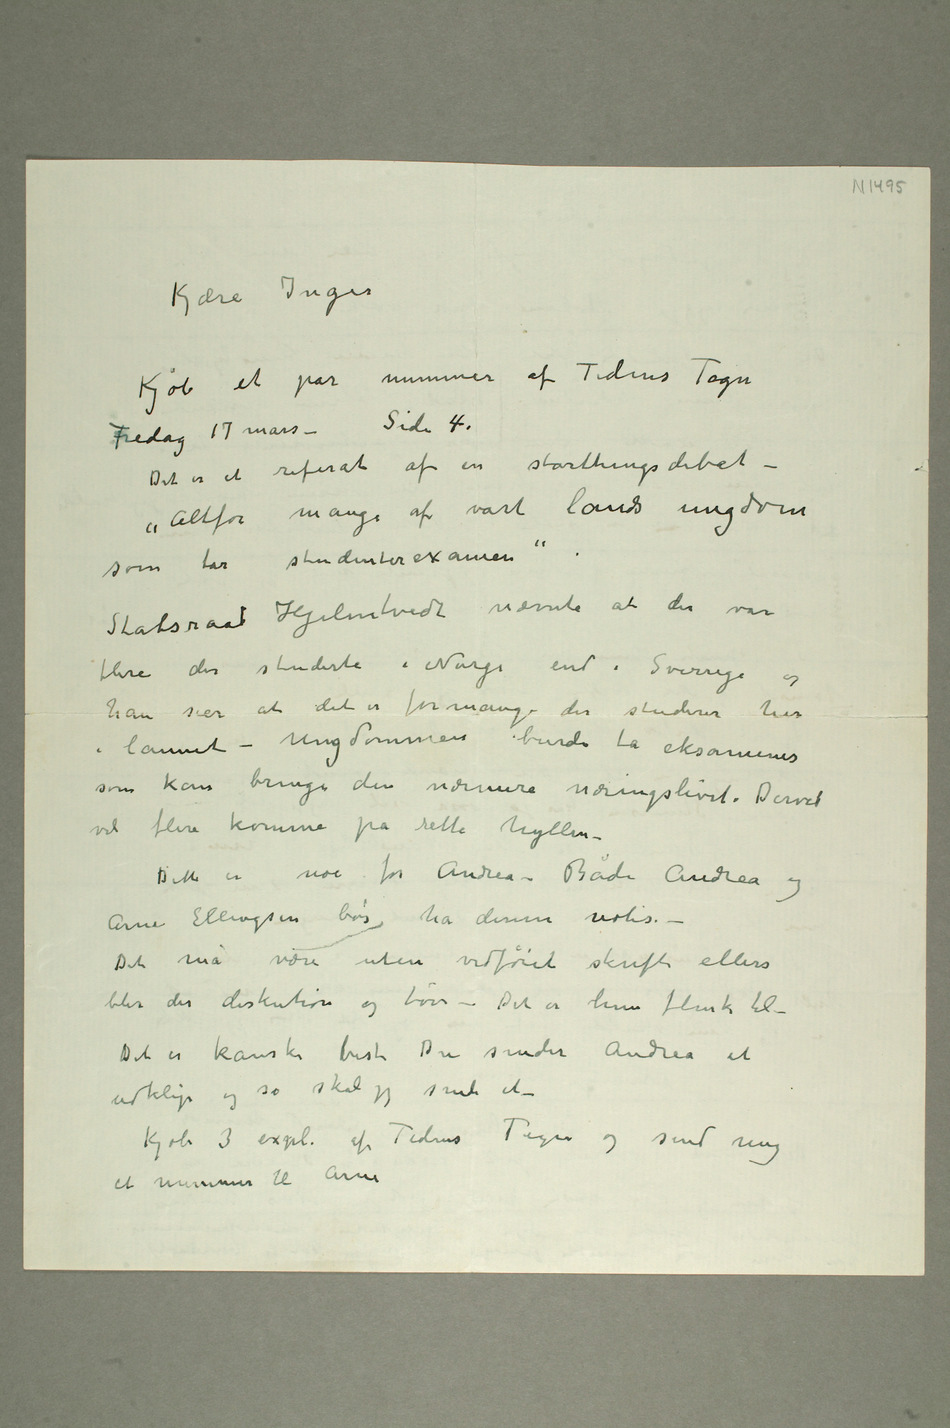 N1495
Kjære Inger
Kjøb et par nummer af Tidens Tegn
Fredag 17 mars – Side 4.
Det er et referat af en storthingsdebat –
„Altfor mange af vårt lands ungdom
som tar studenterexamen“.
Statsraad Hjelmtvedt nævnte at der var
flere der studerte i Norge end i Sverrige og
han sier at det er for mange der studerer her
i lannet – Ungdommen burde ta eksamener
som kan bringe den nærmere næringslivet. Derved
vil flere komme på rette hyllen –
Dette er noe for Andrea – Både Andrea og
Arne Ellingsen bør ha denne notis. –
Det må være uten vedføiet skrift ellers
blir der diskution og bøer – Det er hun flink til –
Det er kanske best Du sender Andrea et
udklip og så skal jeg sende et –
Kjøb 3 expl. af Tidens Tegn og send mig
et nummer til Arne